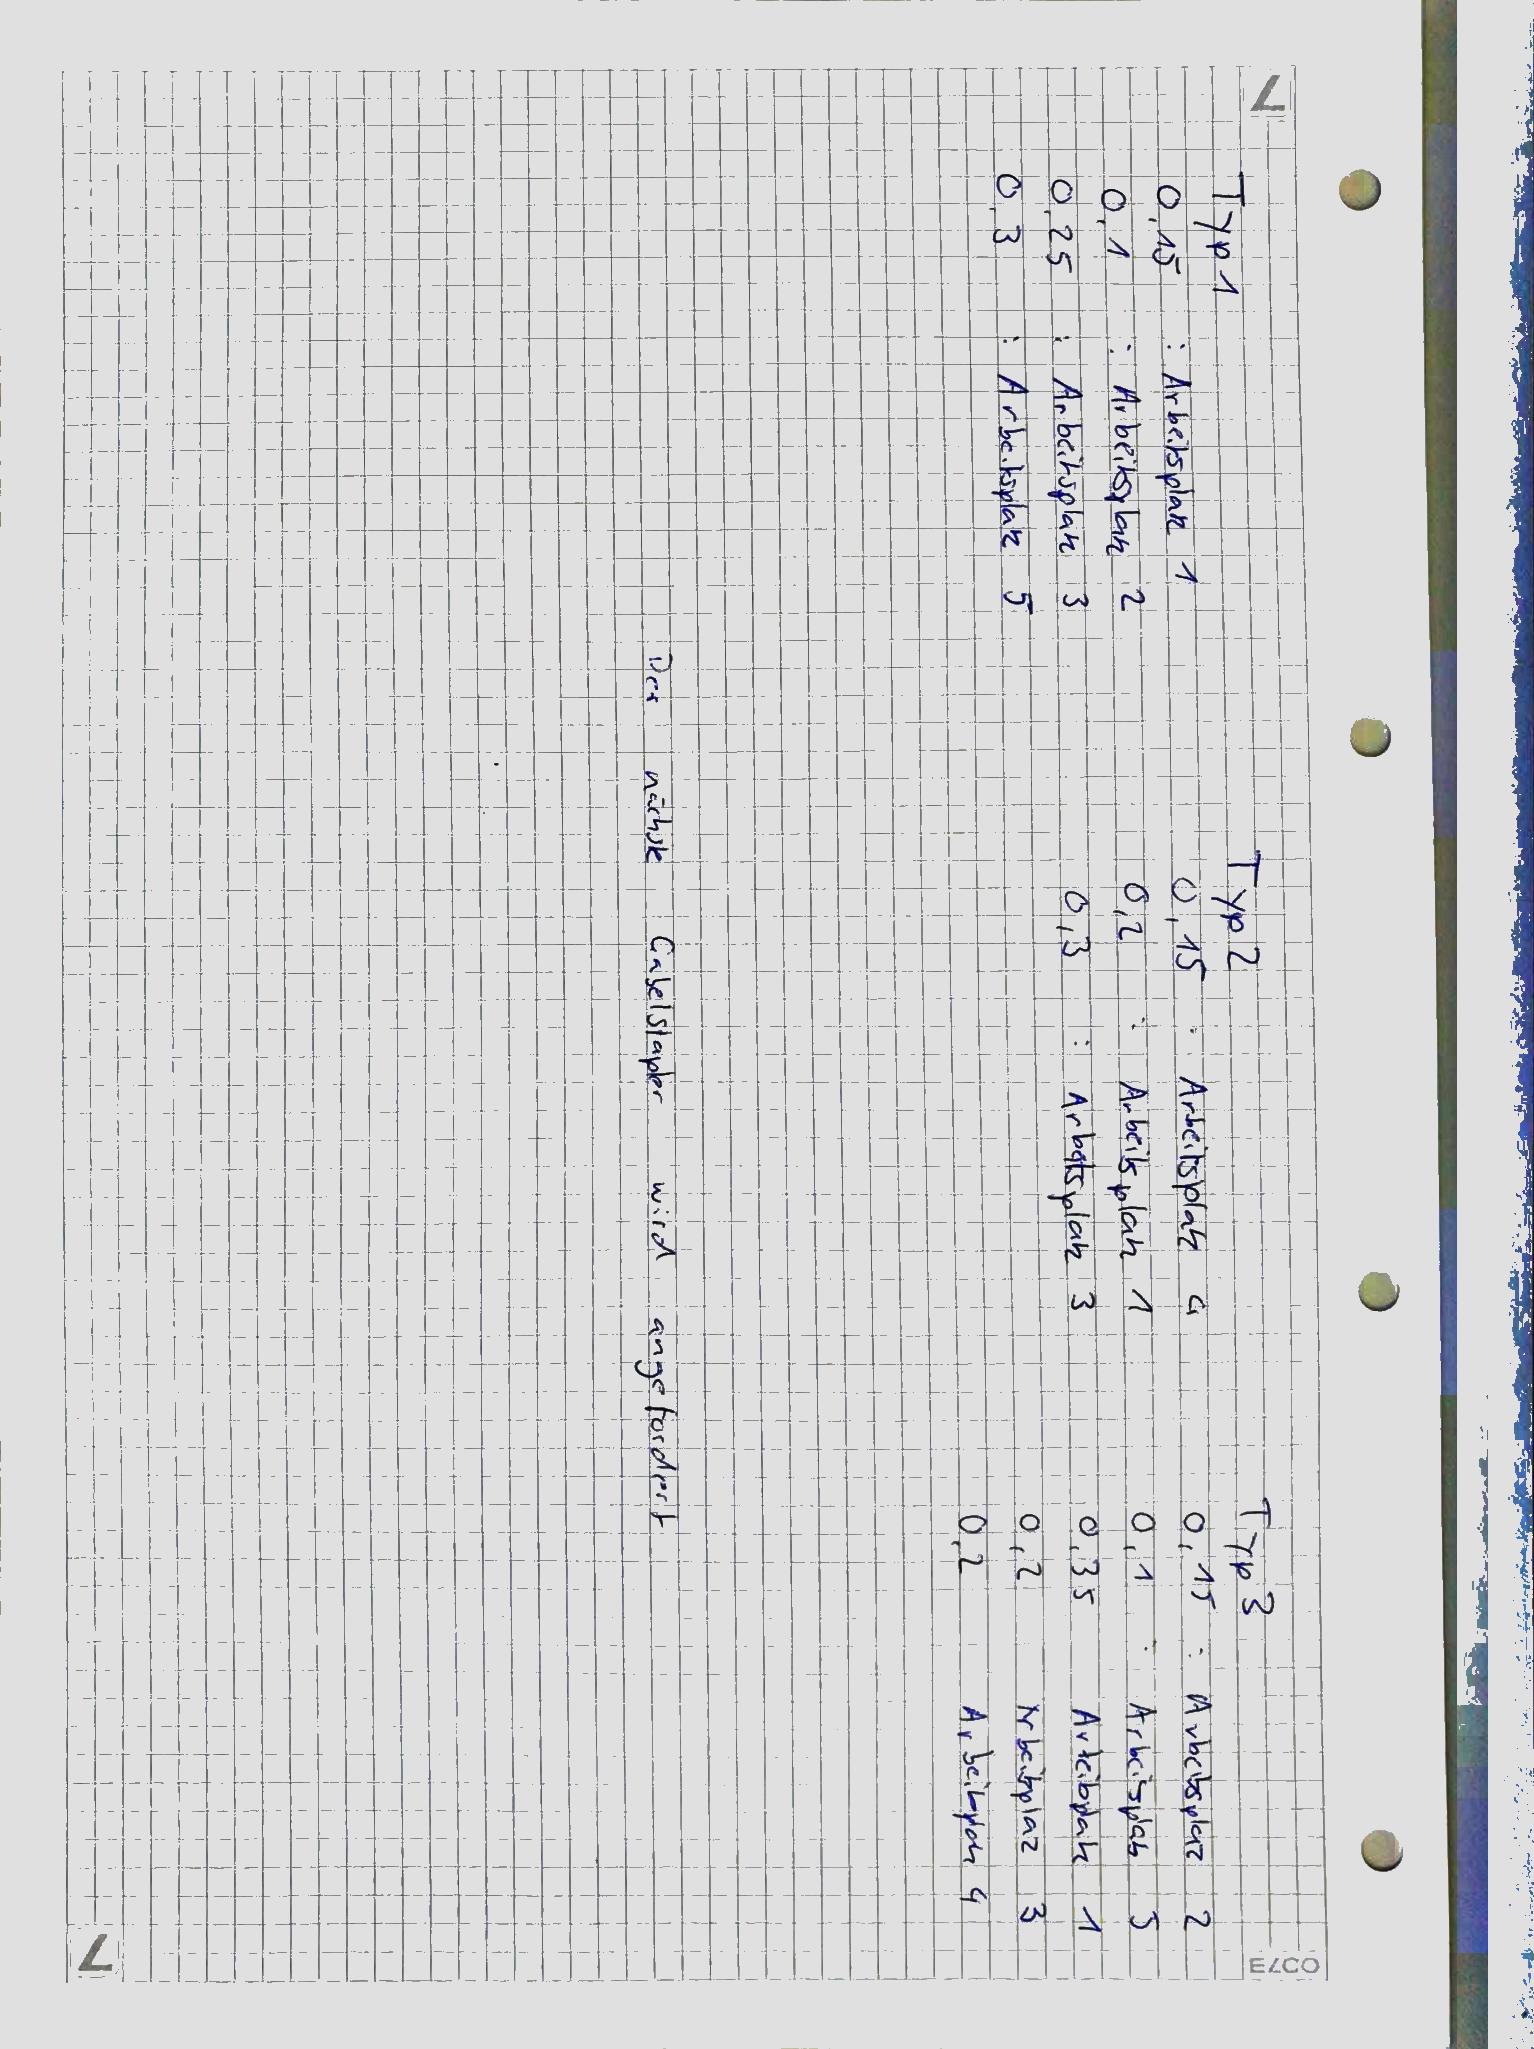 ELCO
Typ 1
0,15 : Arbeitsplatz 1
0,1 : Arbeitsplatz 2
0,25 : Arbeitsplatz 3
0,3 : Arbeitsplatz 5
Typ 2
0,15 : Arbeitsplatz 4
0,2 : Arbeitsplatz 1
0,3 : Arbeitsplatz 3
Typ 3
0,15 : Arbeitsplatz 2
0,1 : Arbeitsplatz 5
0,35 Arbeitsplatz 1
0,2 Arbeitsplatz 3
0,2 Arbeitsplatz 4
Der nächste Gabelstapler wird angefordert